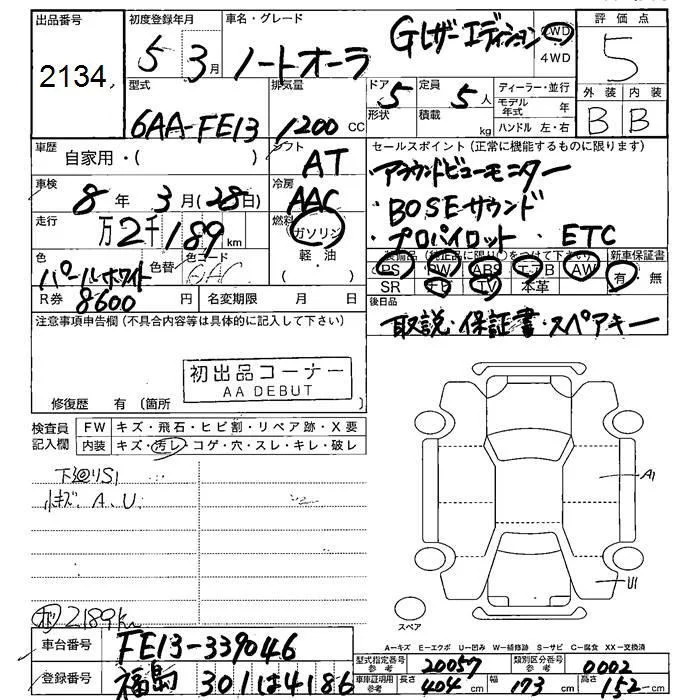 出品番号
2134
初度登録年月
5 3月
車名・グレード
ノートオーラ Gレザーエディション
2WD
4WD
評価点
5
外装 内装
B B
型式
6AA-FE13
排気量
1200 CC
ドア
5
形状
定員
5人
積載 kg
ディーラー・並行
モデル年式 年
ハンドル 左・右
車歴
自家用・( )
シフト
AT
セールスポイント(正常に機能するものに限ります)
・アラウンドビューモニター
・BOSEサウンド
・プロパイロット ・ETC
車検
8年 3月(28日)
冷房
AAC
走行
万2千189km
燃料
ガソリン
軽・油
色
パールホワイト
色替
色コード
QAC
装備品(純正品に限り○をつけて下さい)
PS PW ABS エアB AW
SR ナビ TV 本革
新車保証書
有 無
R券
8600円
名変期限 月 日
後日品
取説・保証書・スペアキー
注意事項申告欄(不具合内容等は具体的に記入して下さい)
初出品コーナー
AA DEBUT
修復歴 有 〔箇所
検査員記入欄
FW キズ・飛石・ヒビ割・リペア跡・X要
内装 キズ・汚レ・コゲ・穴・スレ・キレ・破レ
下廻りS1
小キズ. A. U.
A1
U1
スペア
2189km
A－キズ E－エクボ U－凹み W－補修跡 S－サビ C－腐食 XX－交換済
車台番号
FE13-339046
登録番号
福島 301 は 4186
型式指定番号 参考
20057
類別区分番号 参考
0002
車庫証明用 参考
長さ 404cm
幅 173cm
高さ 152cm